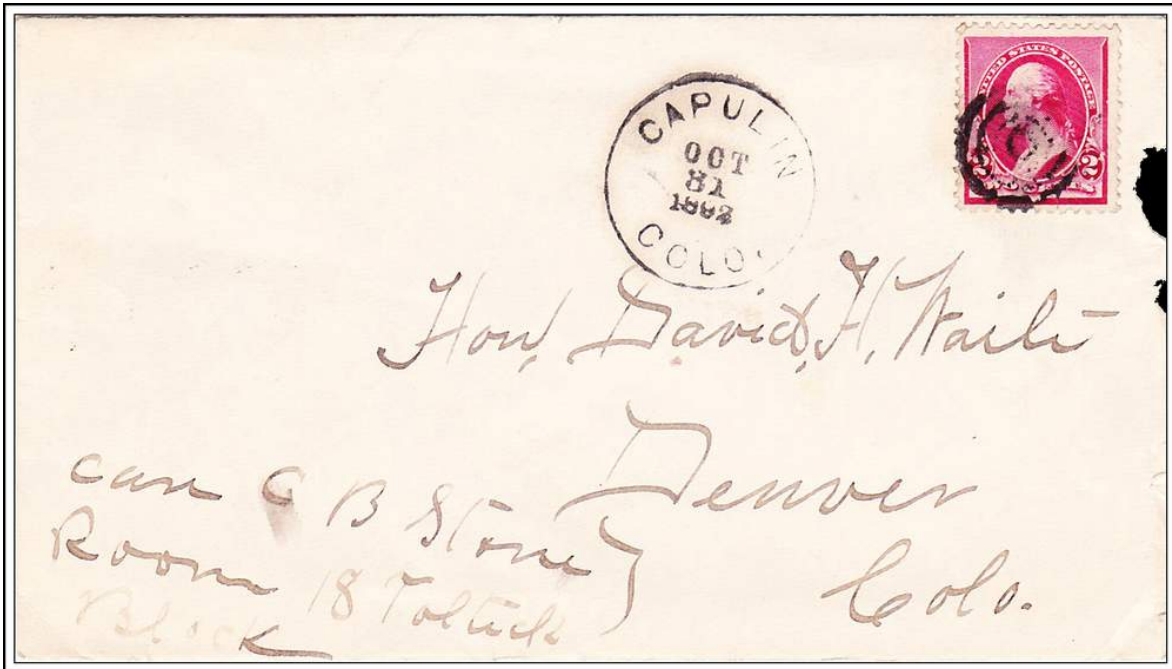 UNITED STATES POSTAGE
2
CAPULIN
OCT
31
1892
COLO.
Hon, David, H, Waite
Denver
Colo.
care C B Stone
Room 18
Block